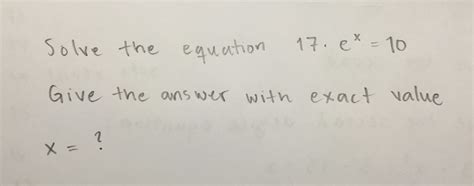 Solve the equation 17. eˣ = 10
Give the answer with exact value
x = ?